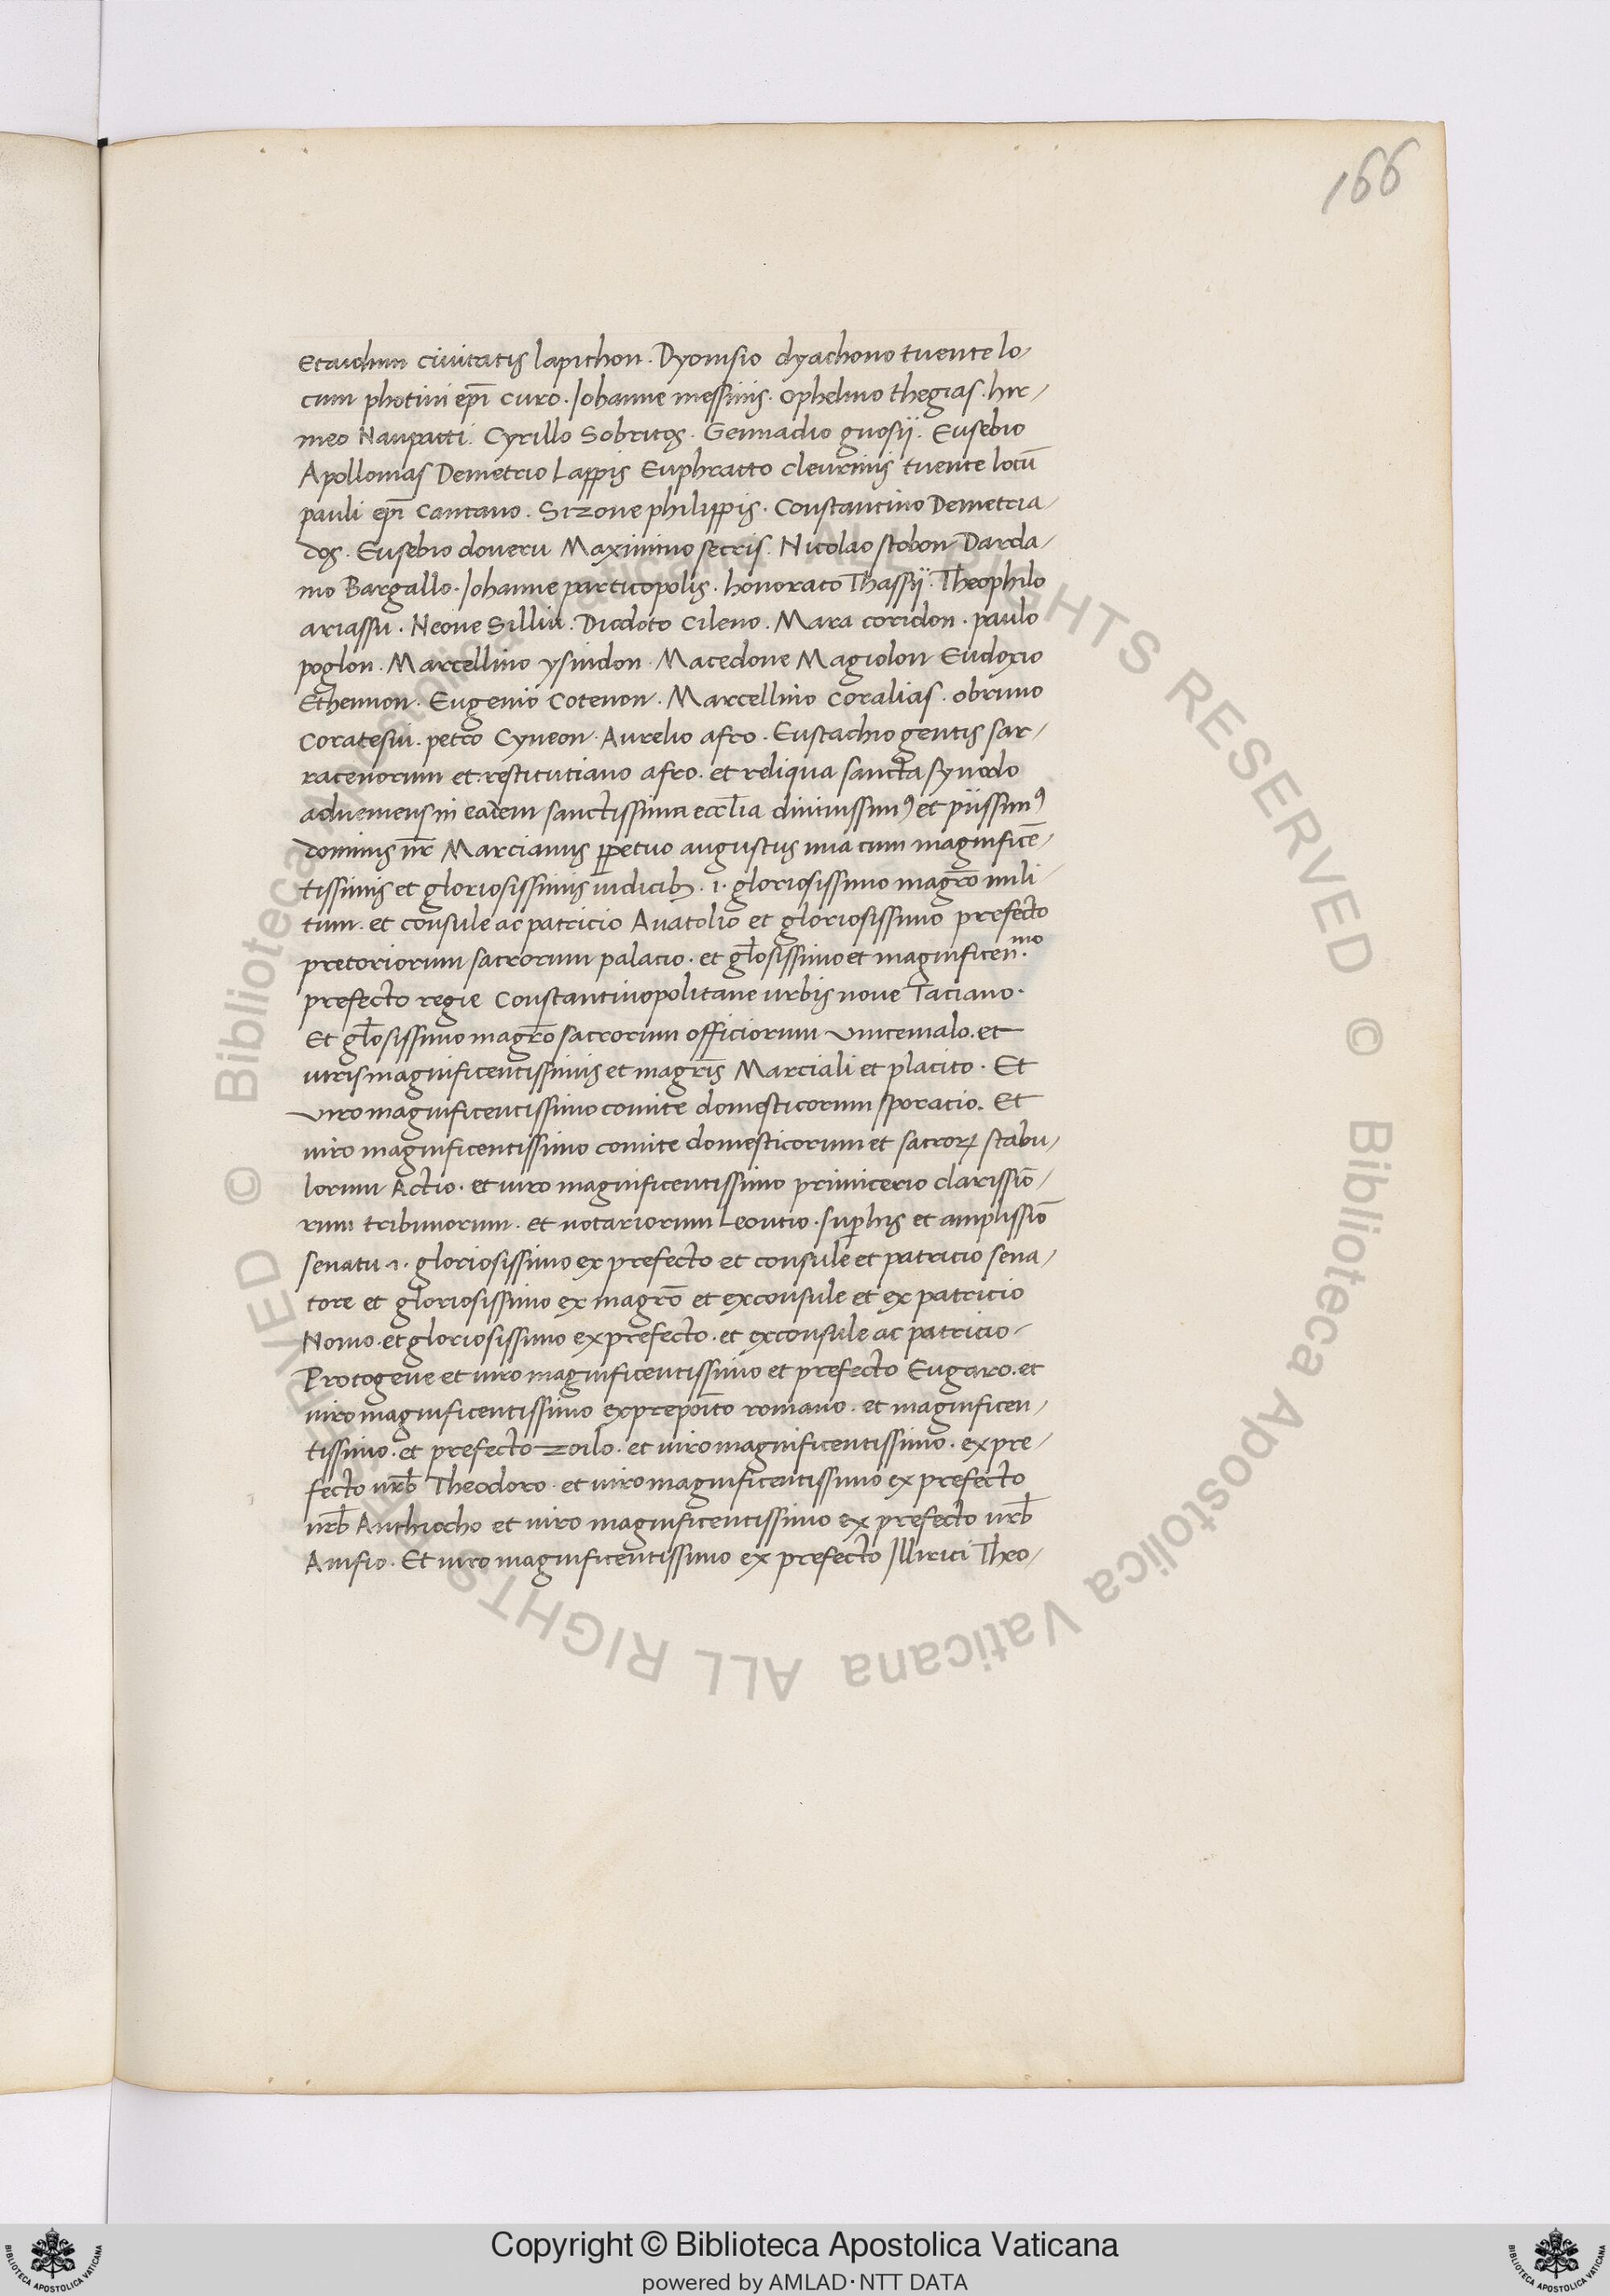 166
Etaidum ciuitatis lapithon. Dyonisio dyachono tuente lo-
cum photini epī curo. Johanne messinis. Ophelino thegias. hir-
meo Naupatti. Cyrillo Sobritos. Gennadio gnosij. Eusebio
Apollonias Demetrio Lappis Euphratto cleurinis tuente locū
pauli epī Cantano. Sizone philippis. Constantino Demetria-
dos. Eusebio doueru Maximino serris. Nicolao stobon Darda-
nio Bargallo. Johanne particopolis. honorato Thassij. Theophilo
ariassu. Neone Silliu. Diodoto Cileno. Mara coridon. paulo
poglon. Marcellino ysindon. Macedone Magiolon Eudoxio
Ethennon. Eugenio Cotenon. Marcellino coralias. obrimo
Coratesiu. petro Cyneon. Aurelio afro. Eustachio gentis sar-
racenorum et restitutiano afro. et reliqua sancta synodo
adueniens in eādem sanctissima ecclīa diuinissimꝰ et piissimꝰ
dominus nr̄ Marcianus ꝑpetuo augustus una cum magnificē-
tissimis et gloriosissimis iudicibꝫ .i. gloriosissimo magrō mili-
tum. et consule ac patricio Anatolio et gloriosissimo prefecto
pretoriorum sacrorum palacio. et gl̄osissimo et magnificen.mo
prefecto regie Constantinopolitane urbis noue Taciano.
Et gl̄osissimo magrō sacrorum officiorum Vincemalo. et
uiris magnificentissimis et magrīs Marciali et placito. Et
Viro magnificentissimo comite domesticorum sporacio. Et
uiro magnificentissimo comite domesticorum et sacroꝝ stabu-
lorum Actio. et uiro magnificentissimo primicerio clarissio̅-
rum tribunorum. et notariorum Leontio. suꝑ his et amplissio̅
senatu .i. gloriosissimo ex prefecto et consule et patricio sena-
tore et gloriosissimo ex magrō et exconsule et ex patricio
Nomo. et gloriosissimo exprefecto. et exconsule ac patricio
Protogene et uiro magnificentissimo et prefecto Eugaro. et
uiro magnificentissimo expreposito romano. et magnificen-
tissimo. et prefecto zoilo. et uiro magnificentissimo. ex pre-
fecto urb̄ Theodoro. et uiro magnificentissimo ex prefecto
urb̄ Anthiocho et uiro magnificentissimo ex prefecto urb̄
Anisio. Et uiro magnificentissimo ex prefecto Jllirici Theo-
© Biblioteca Apostolica Vaticana ALL RIGHTS RESERVED © Biblioteca Apostolica Vaticana ALL RIGHTS RESERVED
Copyright © Biblioteca Apostolica Vaticana
powered by AMLAD·NTT DATA
BIBLIOTECA APOSTOLICA VATICANA
BIBLIOTECA APOSTOLICA VATICANA